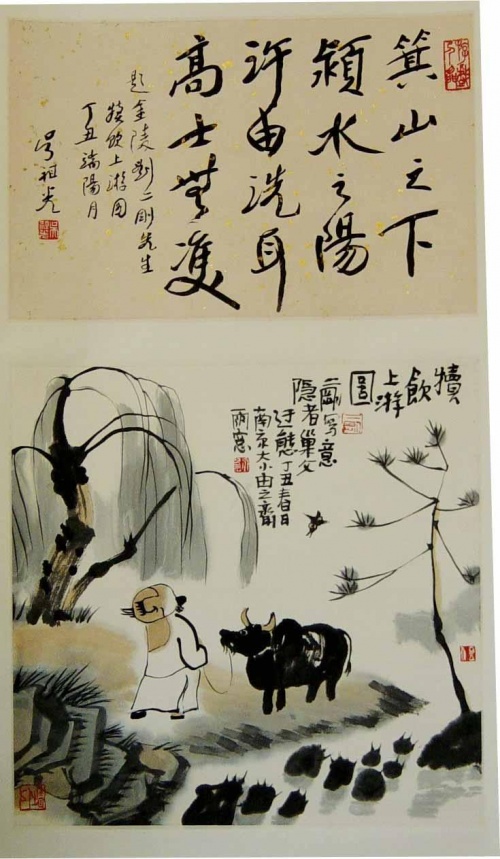 箕山之下
潁水之陽
许由洗耳
高士無雙
题金陵刘二刚先生
犊饮上游图
丁丑端陽月
吴祖光
犢飲上游圖
二剛寫意
隱者巢父
迂態丁丑春日
南京大小由之齋
雨窓